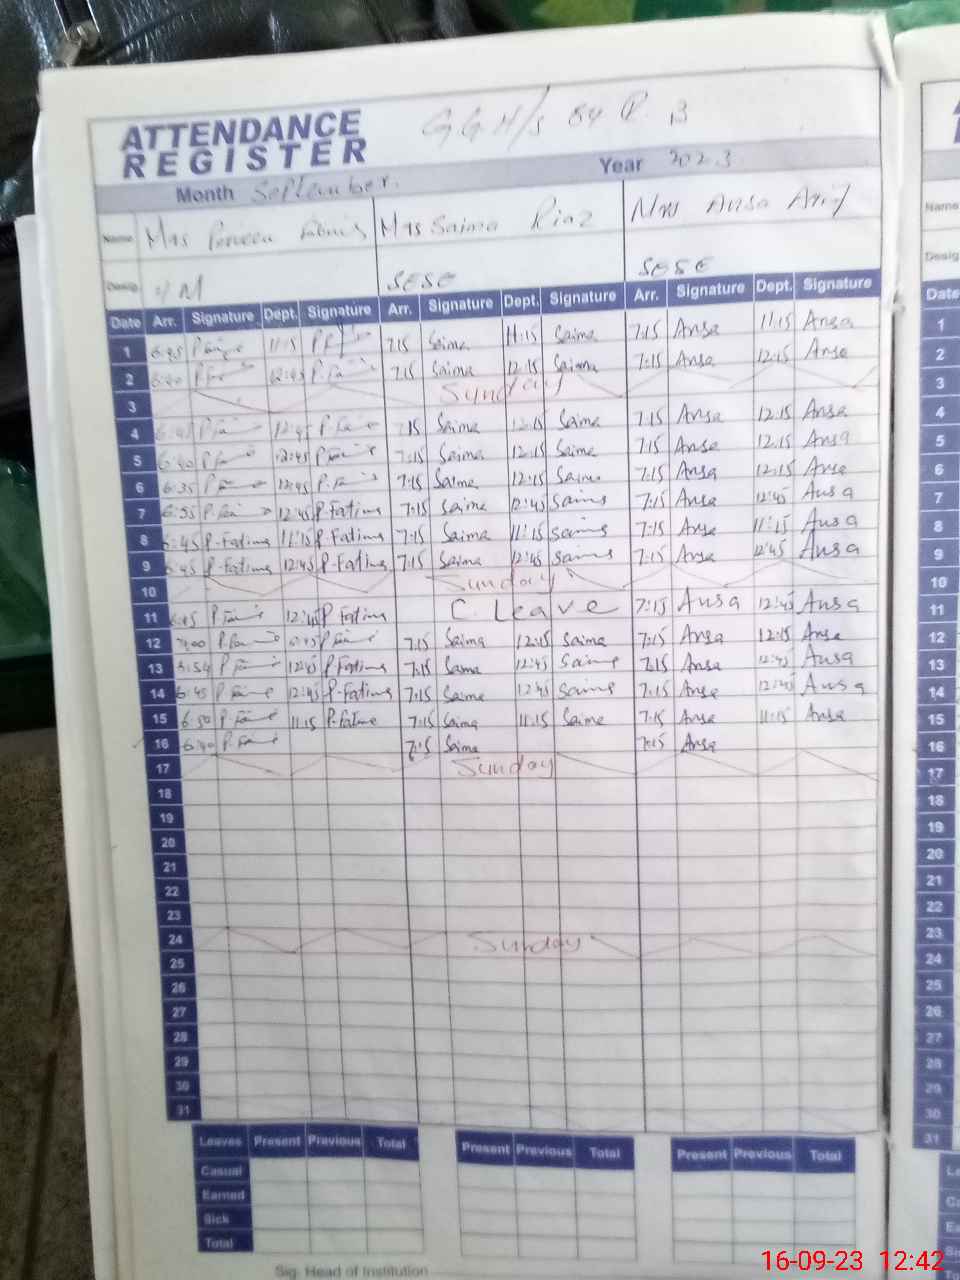 ATTENDANCE
REGISTER
G G H/S 84 P. B
Month September. Year 2023
Name Mrs Fatima Mrs Saima Riaz Mrs Ansa Arif
Desig. H/M SESE SESE
Date Arr. Signature Dept. Signature Arr. Signature Dept. Signature Arr. Signature Dept. Signature
1 6:45 11:15 7:15 Saima 11:15 Saima 7:15 Ansa 11:15 Ansa
2 12:45 7:15 Saima 12:15 Saima 7:15 Ansa 12:15 Ansa
3 Sunday
4 7:15 Saima 12:15 Saima 7:15 Ansa 12:15 Ansa
5 6:40 12:45 7:15 Saima 12:15 Saima 7:15 Ansa 12:15 Ansa
6 6:35 12:45 7:15 Saima 12:15 Saima 7:15 Ansa 12:15 Ansa
7 12:45 P.Fatima 7:15 Saima 12:45 Saima 7:15 Ansa 12:45 Ansa
8 6:45 P.Fatima 11:15 P.Fatima 7:15 Saima 11:15 Saima 7:15 Ansa 11:15 Ansa
9 6:45 P.Fatima 12:45 P.Fatima 7:15 Saima 12:45 Saima 7:15 Ansa 12:45 Ansa
10 Sunday
11 6:45 12:45 P.Fatima C. Leave 7:15 Ansa 12:45 Ansa
12 7:00 7:15 Saima 12:15 Saima 7:15 Ansa 12:15 Ansa
13 12:45 P.Fatima 7:15 Saima 12:45 Saima 7:15 Ansa 12:45 Ansa
14 6:45 12:45 P.Fatima 7:15 Saima 12:45 Saima 7:15 Ansa 12:45 Ansa
15 6:50 11:15 P.Fatima 7:15 Saima 11:15 Saima 7:15 Ansa 11:15 Ansa
16 6:40 7:15 Saima 7:15 Ansa
17 Sunday
18
19
20
21
22
23
24 Sunday
25
26
27
28
29
30
31
Leaves Present Previous Total Present Previous Total Present Previous Total
Casual
Earned
Sick
Total
Sig. Head of Institution
Name
Desig
Date
1
2
3
4
5
6
7
8
9
10
11
12
13
14
15
16
17
18
19
20
21
22
23
24
25
26
27
28
29
30
31
16-09-23 12:42